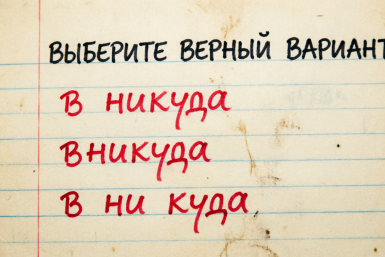 ВЫБЕРИТЕ ВЕРНЫЙ ВАРИАНТ
В никуда
Вникуда
В ни куда